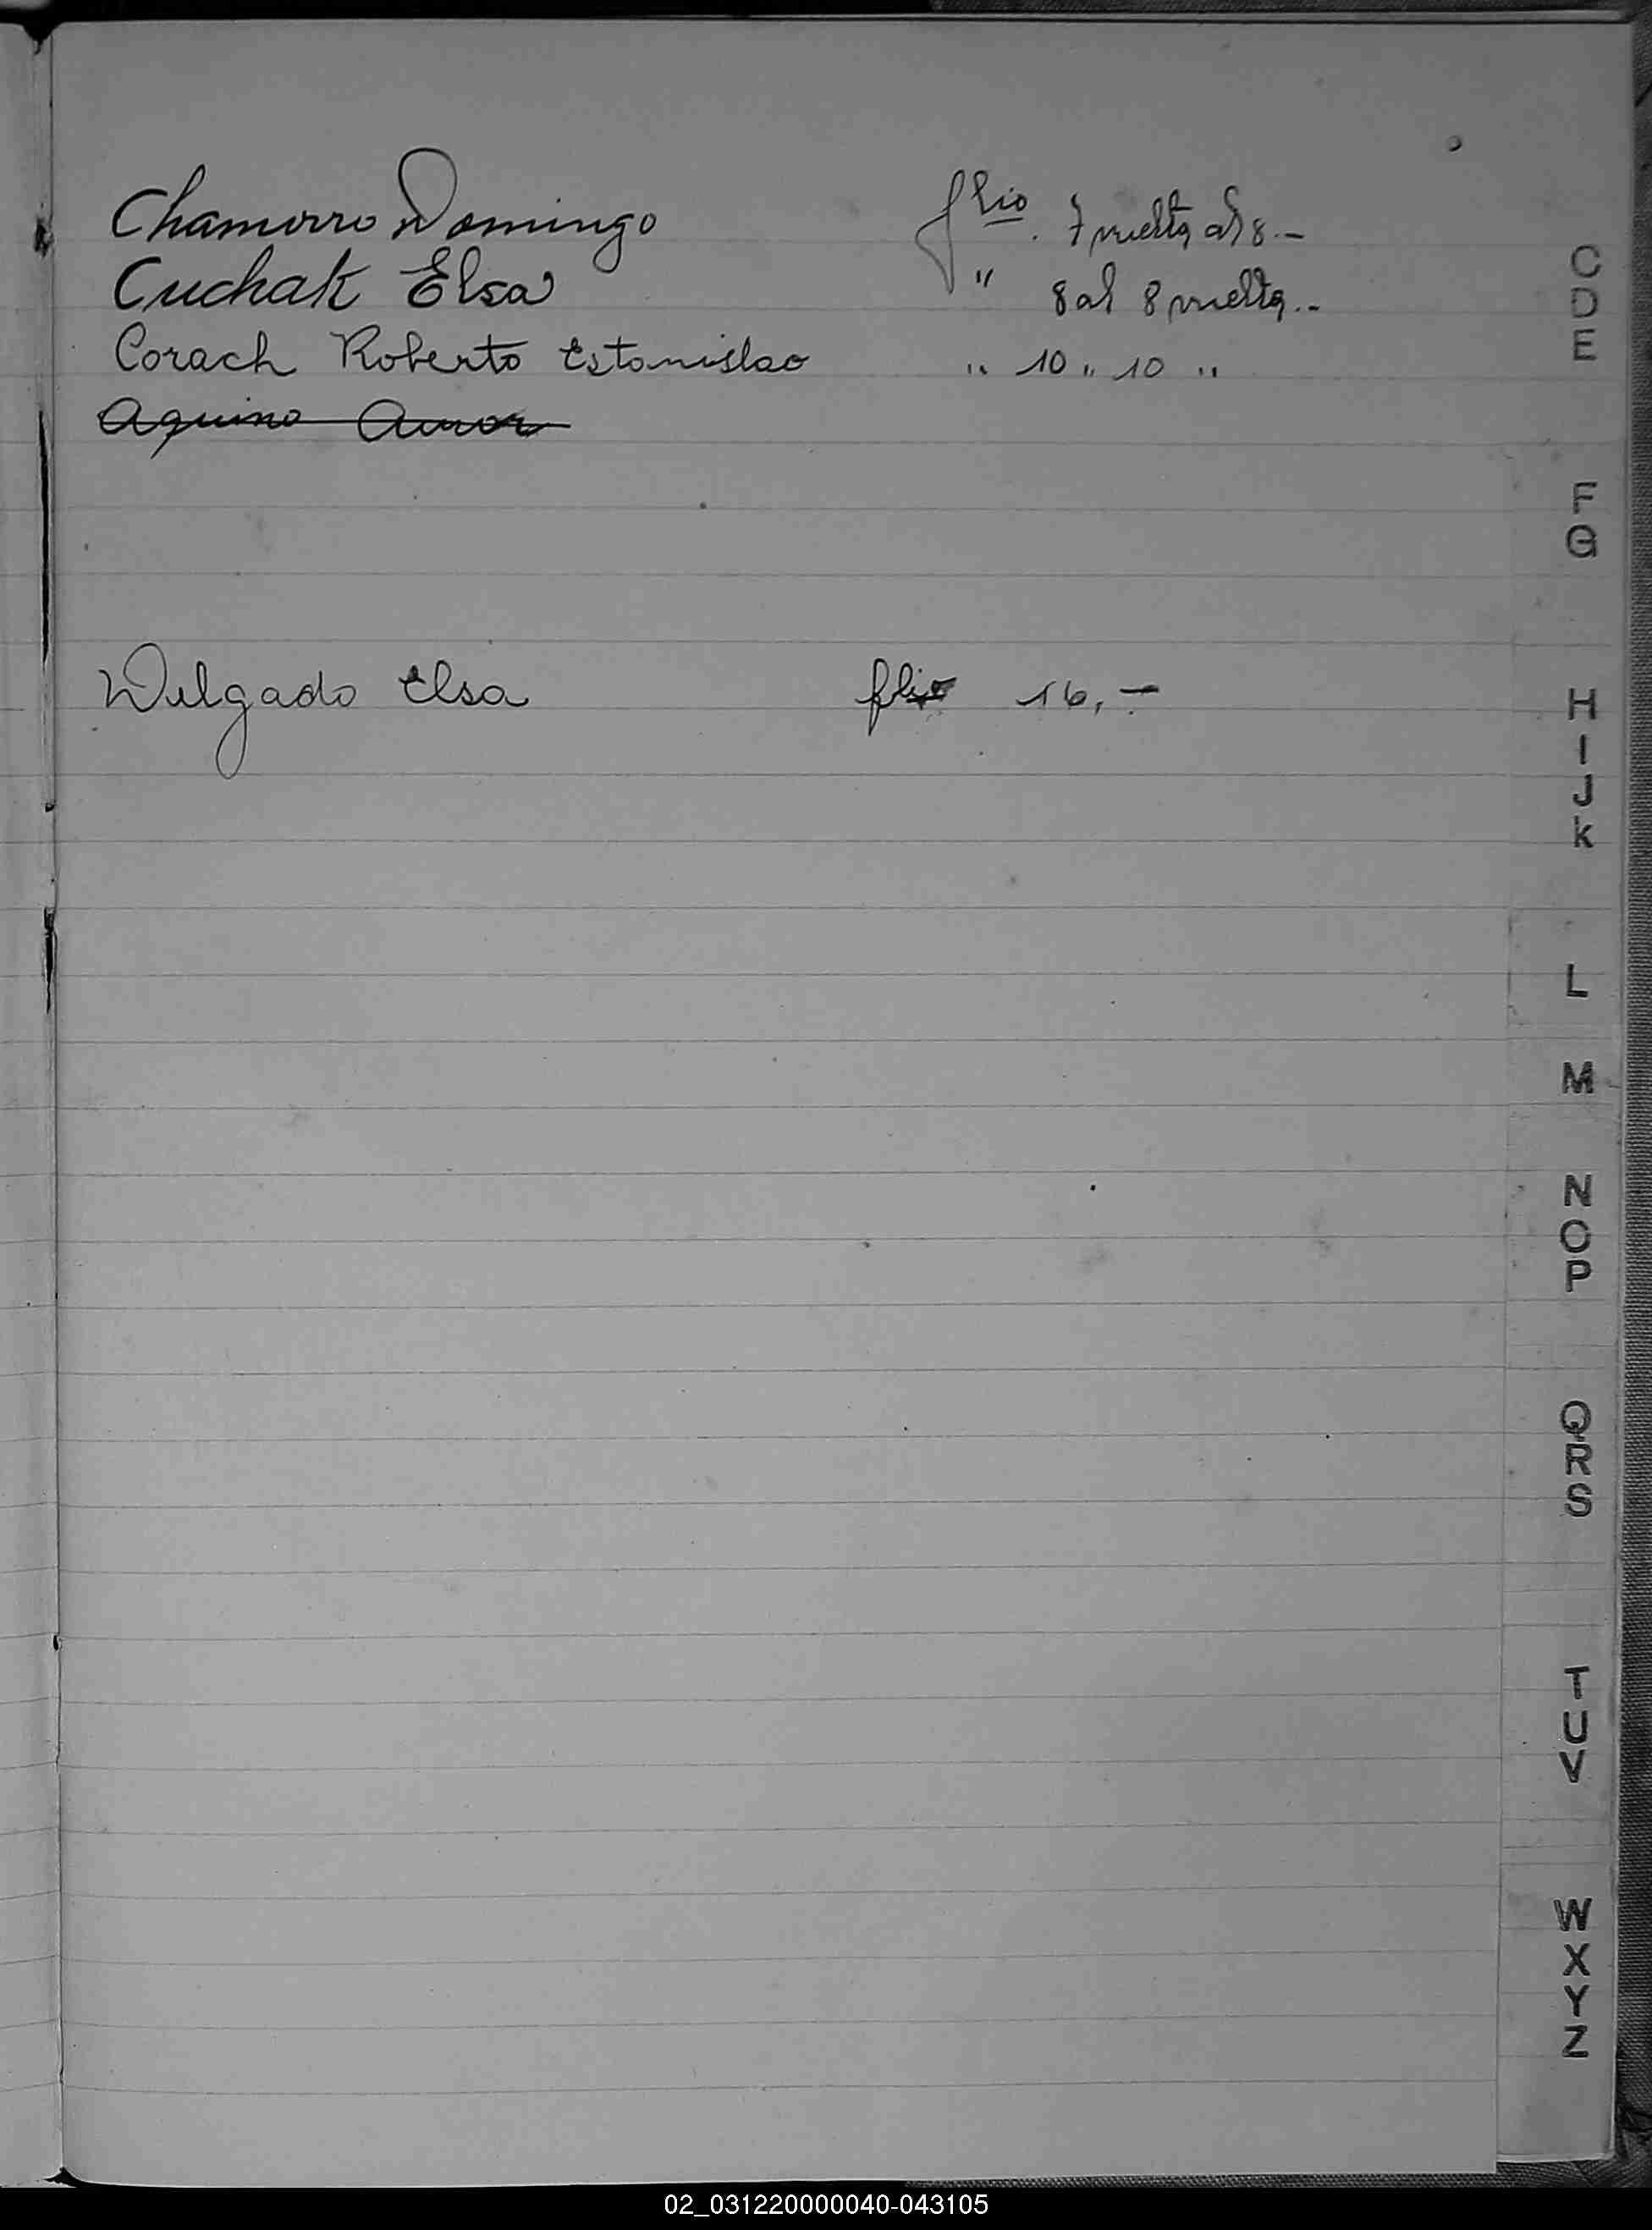 Chamorro Domingo flio. 7 vuelta al 8.-
Cuchak Elsa " 8 al 8 vuelta..
Corach Roberto Estanislao " 10 " 10 "
Aquino
Dulgado Elsa flio 16,-
C
D
E
F
G
H
I
J
K
L
M
N
O
P
Q
R
S
T
U
V
W
X
Y
Z
02_031220000040-043105